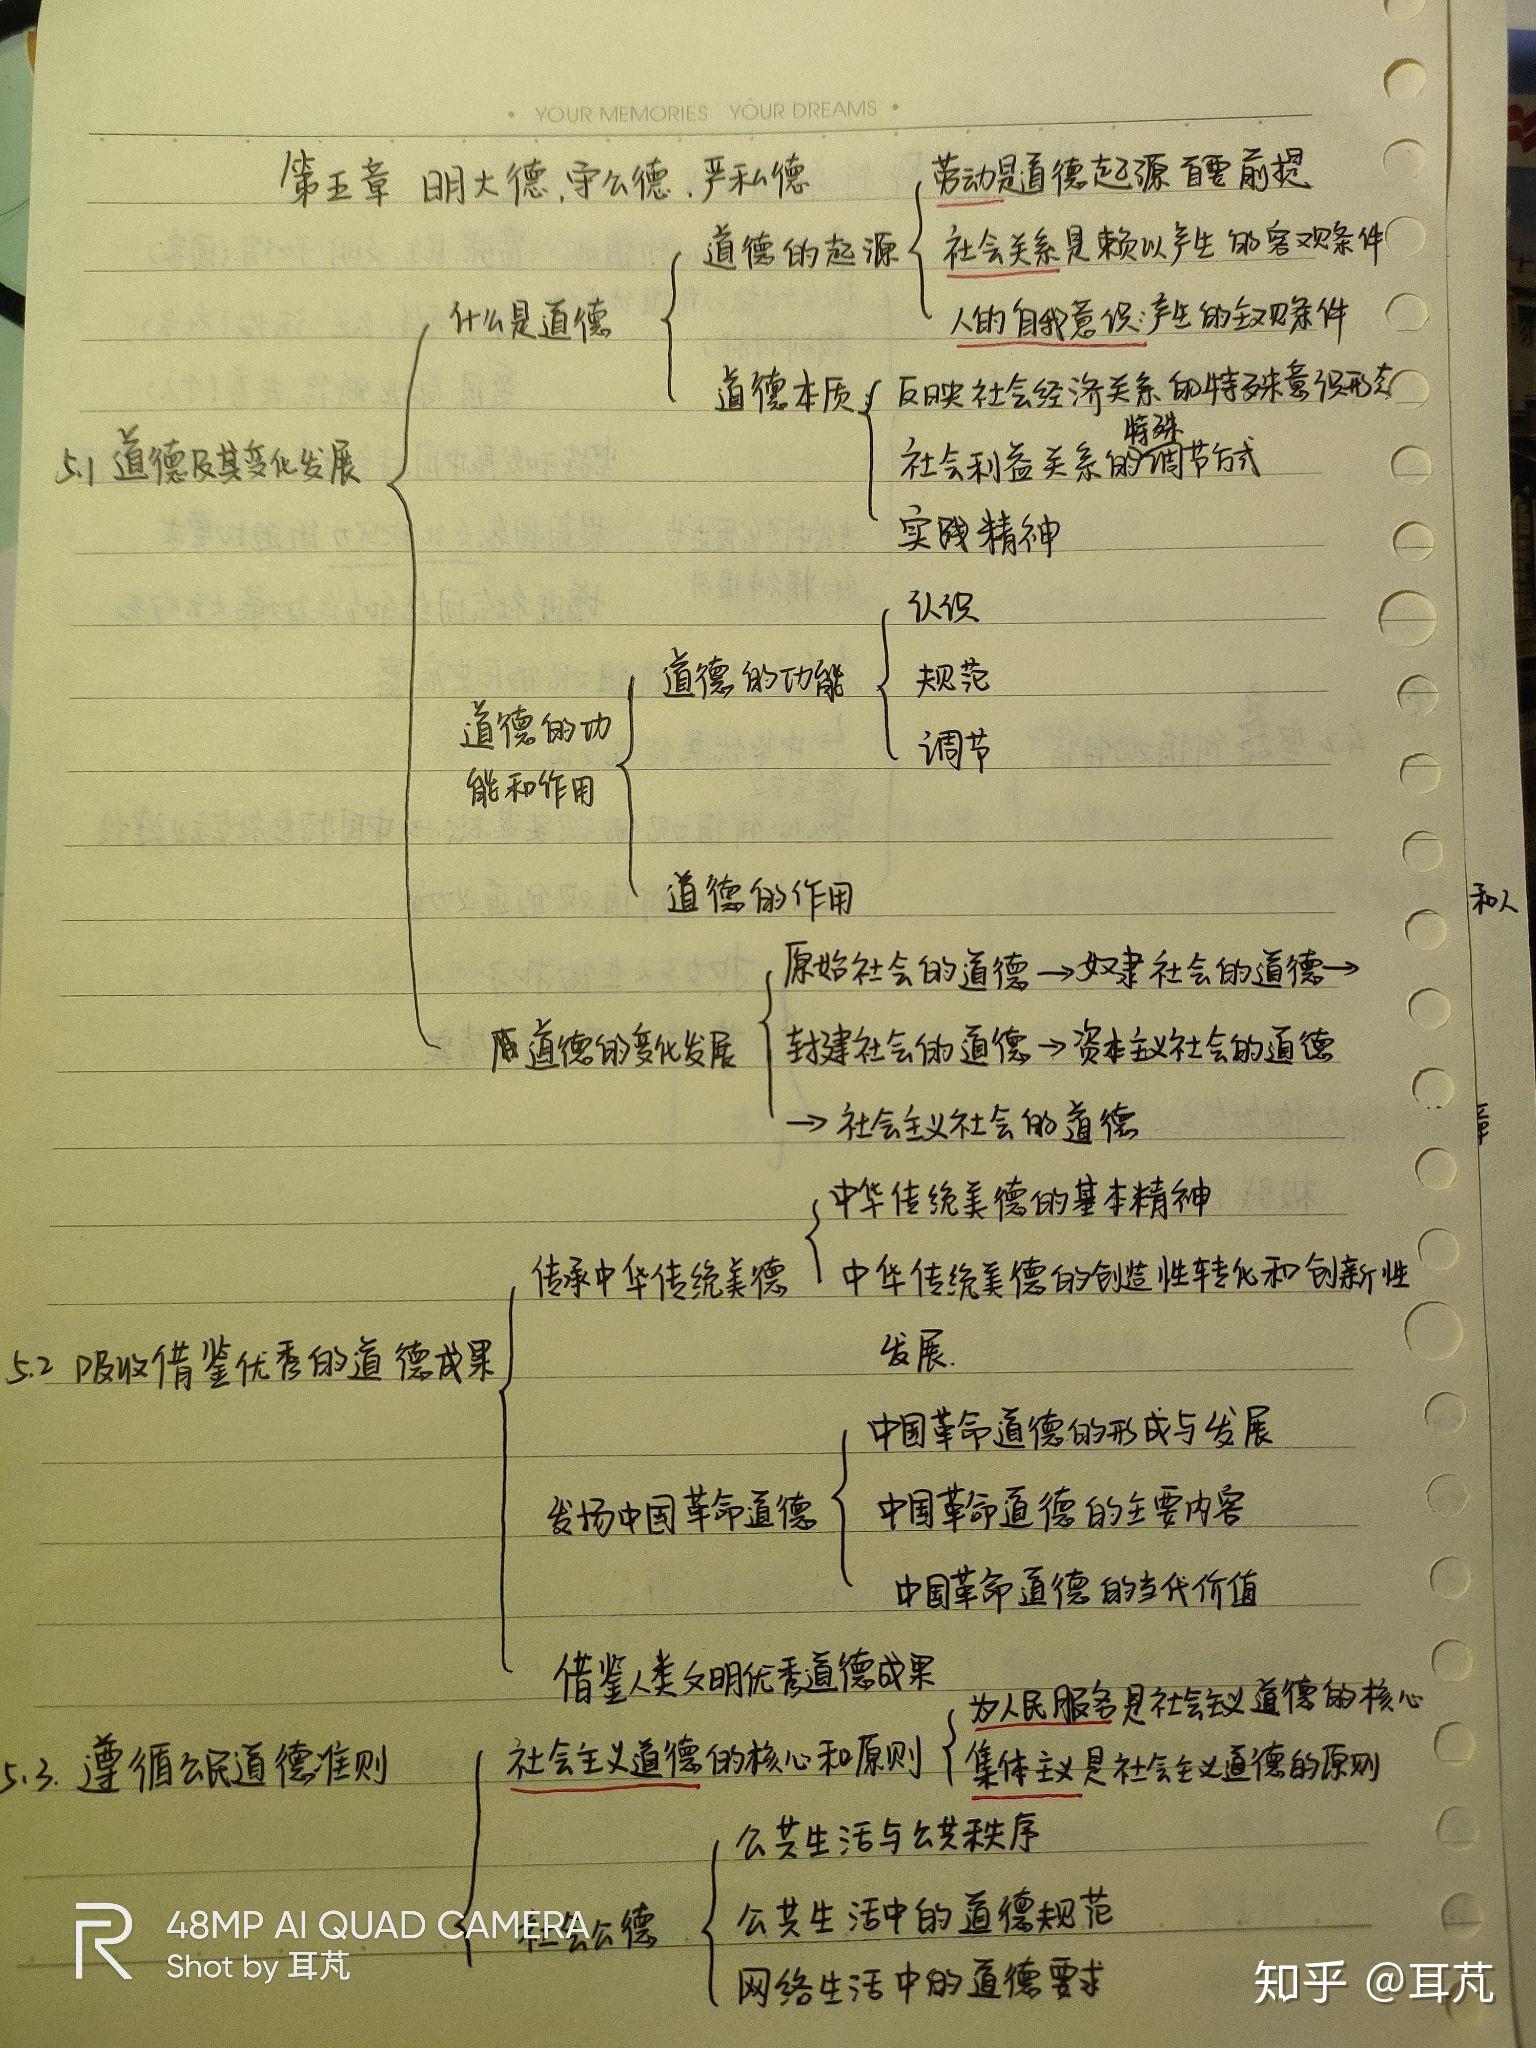 YOUR MEMORIES YOUR DREAMS
第五章 明大德、守公德、严私德
5.1 道德及其变化发展
什么是道德
道德的起源
劳动是道德起源首要前提
社会关系是赖以产生的客观条件
人的自我意识:产生的主观条件
道德本质
反映社会经济关系的特殊意识形态
社会利益关系的特殊调节方式
实践精神
道德的功
能和作用
道德的功能
认识
规范
调节
道德的作用
道德的变化发展
原始社会的道德→奴隶社会的道德→
封建社会的道德→资本主义社会的道德
→社会主义社会的道德
5.2 吸收借鉴优秀的道德成果
传承中华传统美德
中华传统美德的基本精神
中华传统美德的创造性转化和创新性
发展.
发扬中国革命道德
中国革命道德的形成与发展
中国革命道德的主要内容
中国革命道德的当代价值
借鉴人类文明优秀道德成果
5.3. 遵循公民道德准则
社会主义道德的核心和原则
为人民服务是社会主义道德的核心
集体主义是社会主义道德的原则
社会公德
公共生活与公共秩序
公共生活中的道德规范
网络生活中的道德要求
和人
R 48MP AI QUAD CAMERA
Shot by 耳芃
知乎 @耳芃